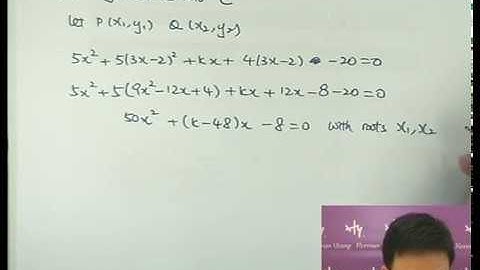 Let P(x₁,y₁) Q(x₂,y₂)
5x² + 5(3x-2)² + kx + 4(3x-2) -20=0
5x² + 5(9x²-12x+4) + kx + 12x - 8 - 20 = 0
50x² + (k-48)x - 8 = 0 with roots x₁, x₂